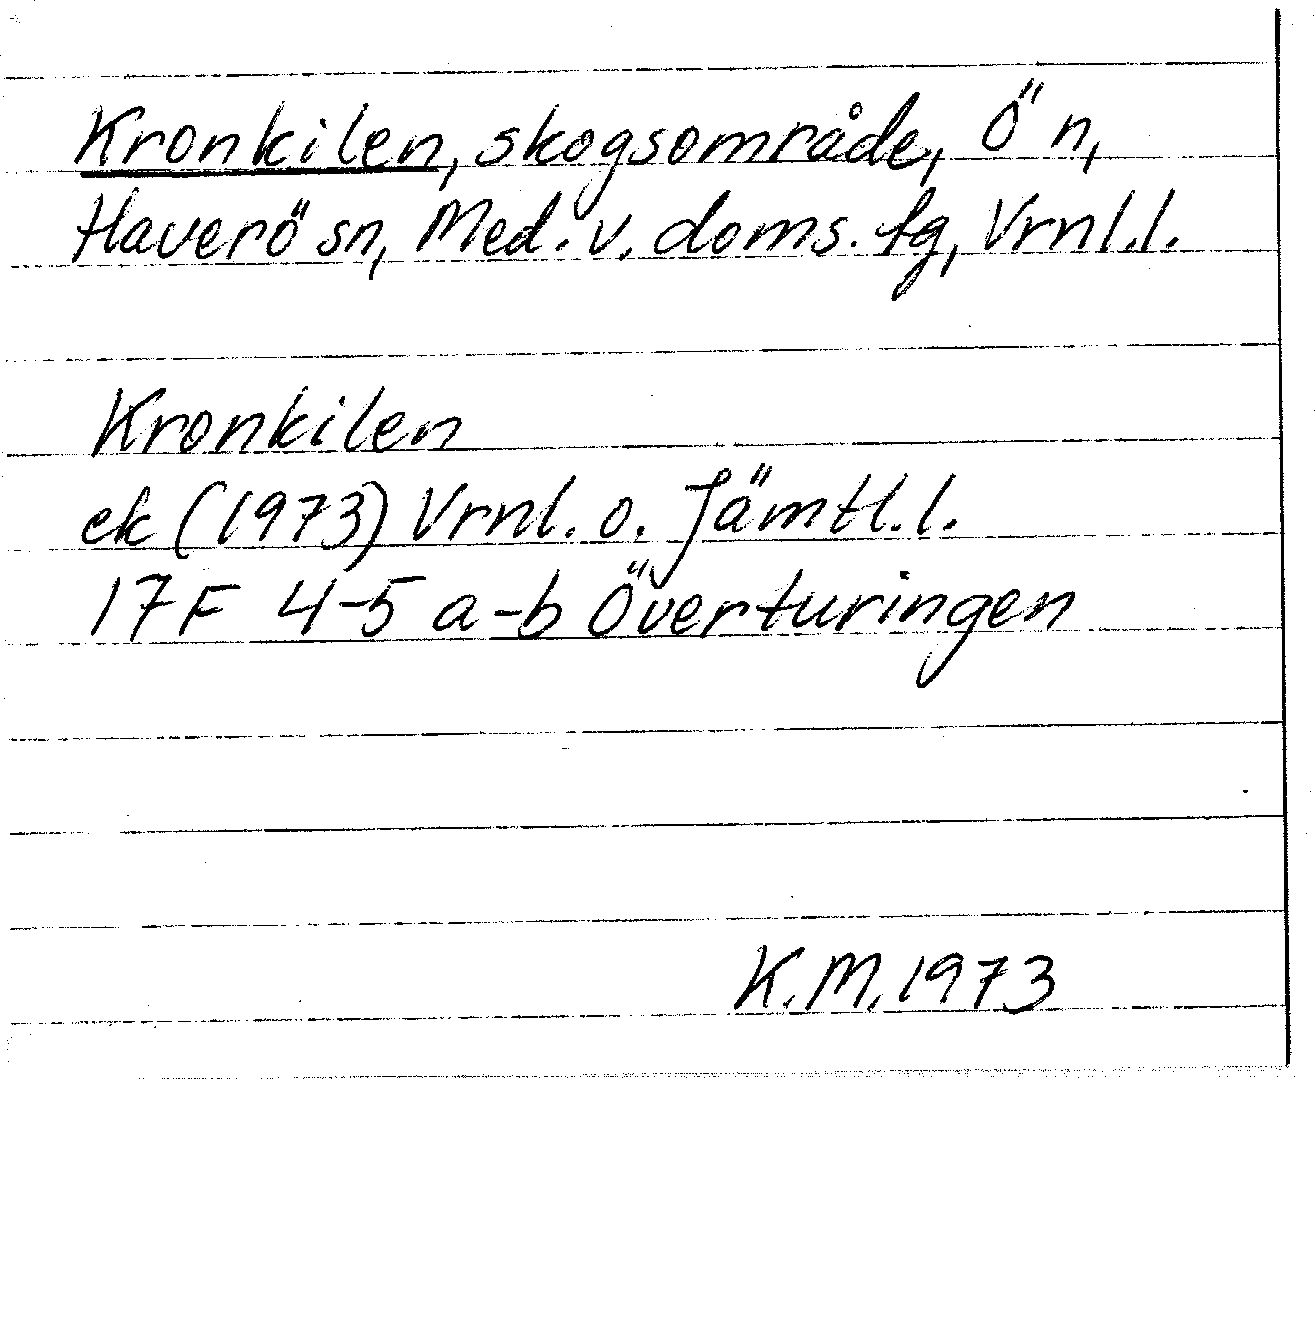 Kronkilen, skogsområde, Ö n,
Haverö sn, Med. v. doms. tg, Vrnl.l.
Kronkilen
ek (1973) Vrnl. o. Jämtl.l.
17F 4-5 a-b Överturingen
K.M. 1973